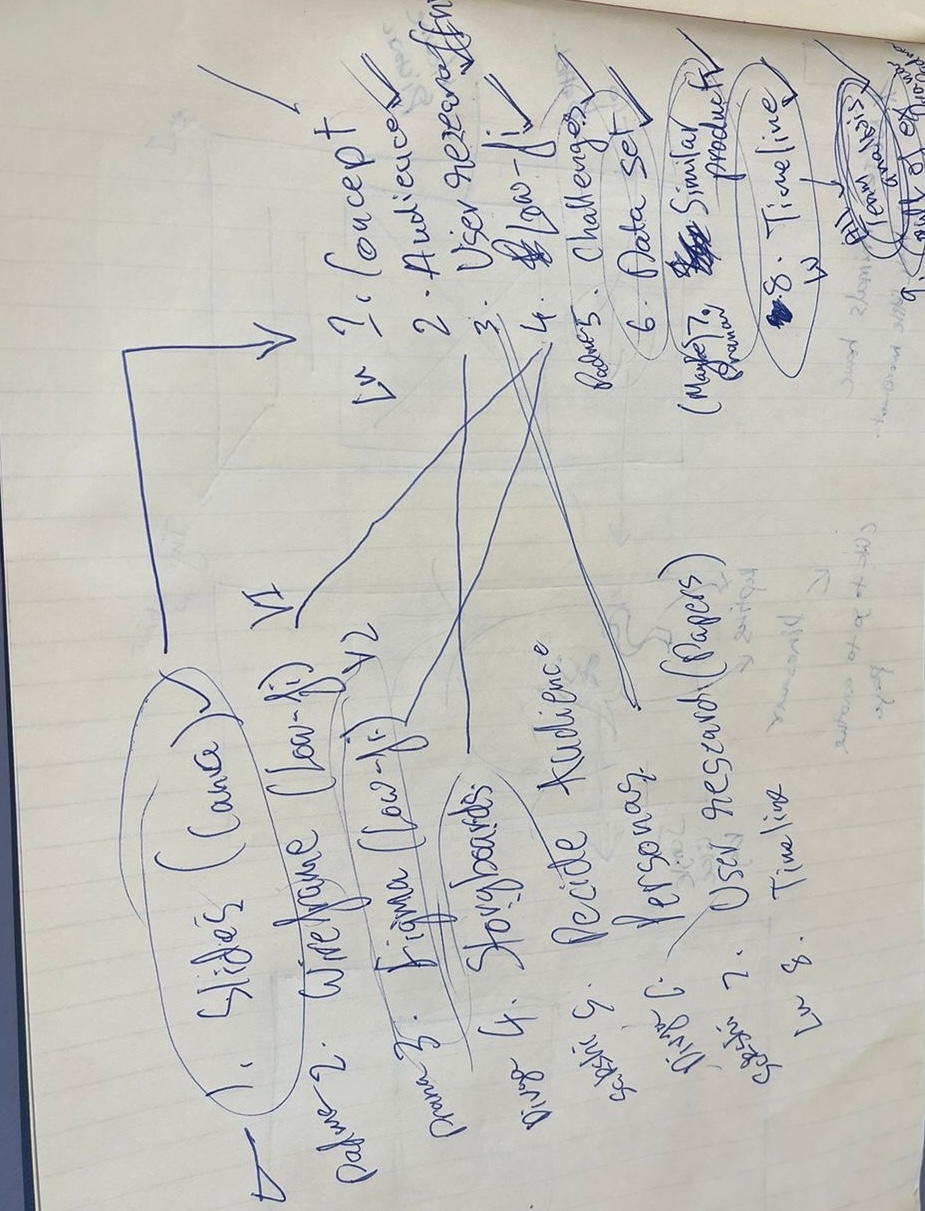 1. Slides (Canva)
2. Wireframe (Low-fi) V1
3. Figma (Low-fi) V2
Divya 4. Storyboards
Sakshi 5. Decide Audience
Divya 6. Personas
Sakshi 7. User research (Papers)
Lv 8. Timeline
Lv 1. Concept
2. Audience
3. User research
4. Low-fi
5. Challenges
6. Data set
(Maybe) 7. Similar products
8. Timeline
Lv
All
Team analysis
9.